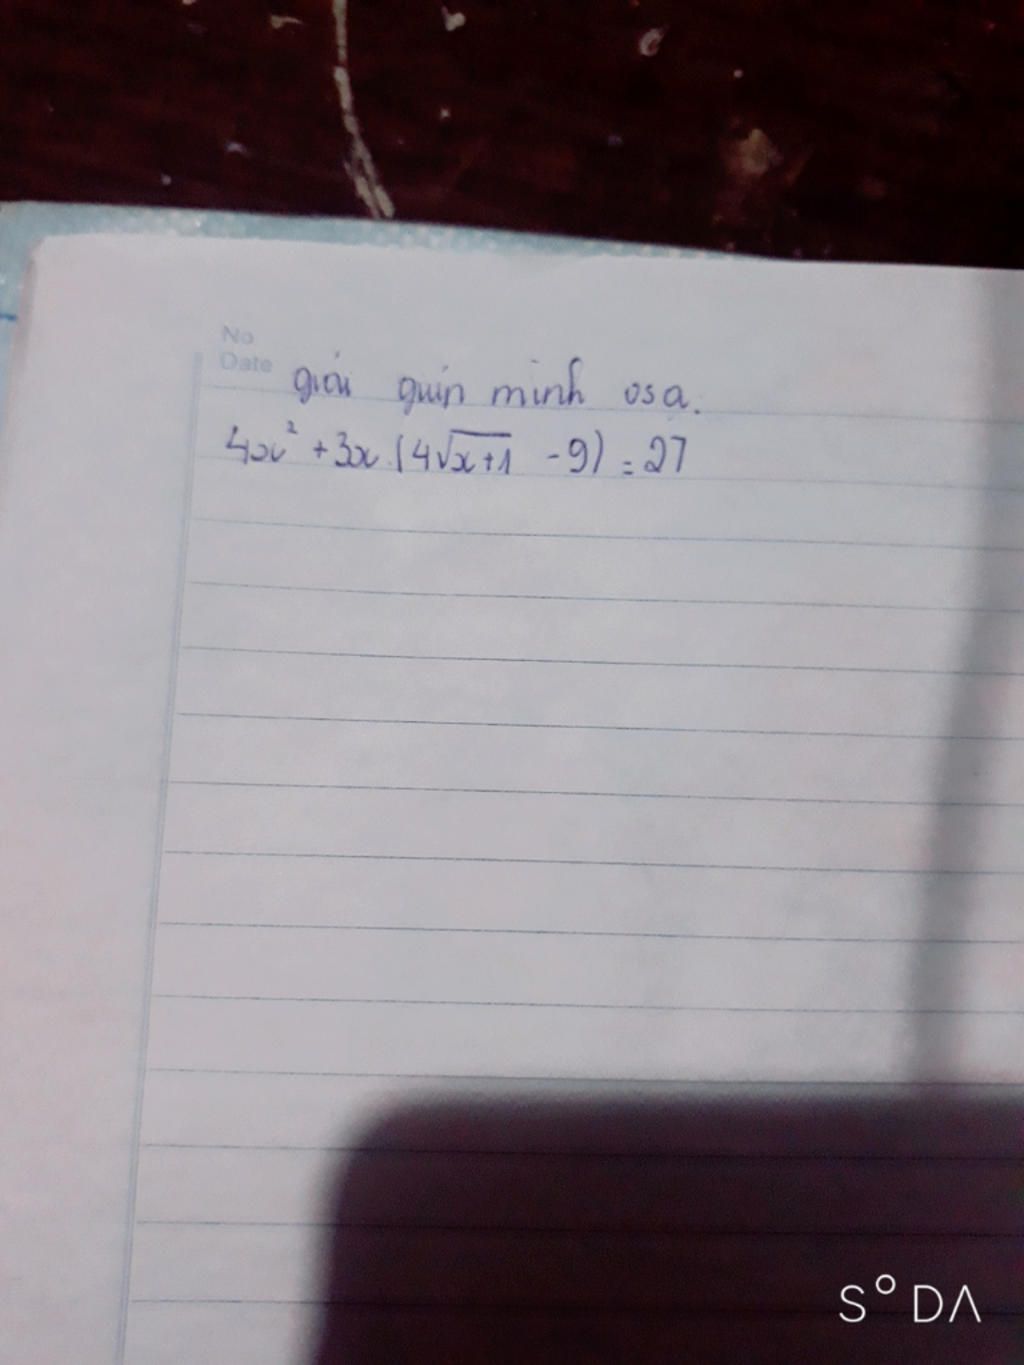 No
Date
giải giúp mình vs ạ.
4x² + 3x.(4√x+1 - 9) = 27
S°DA